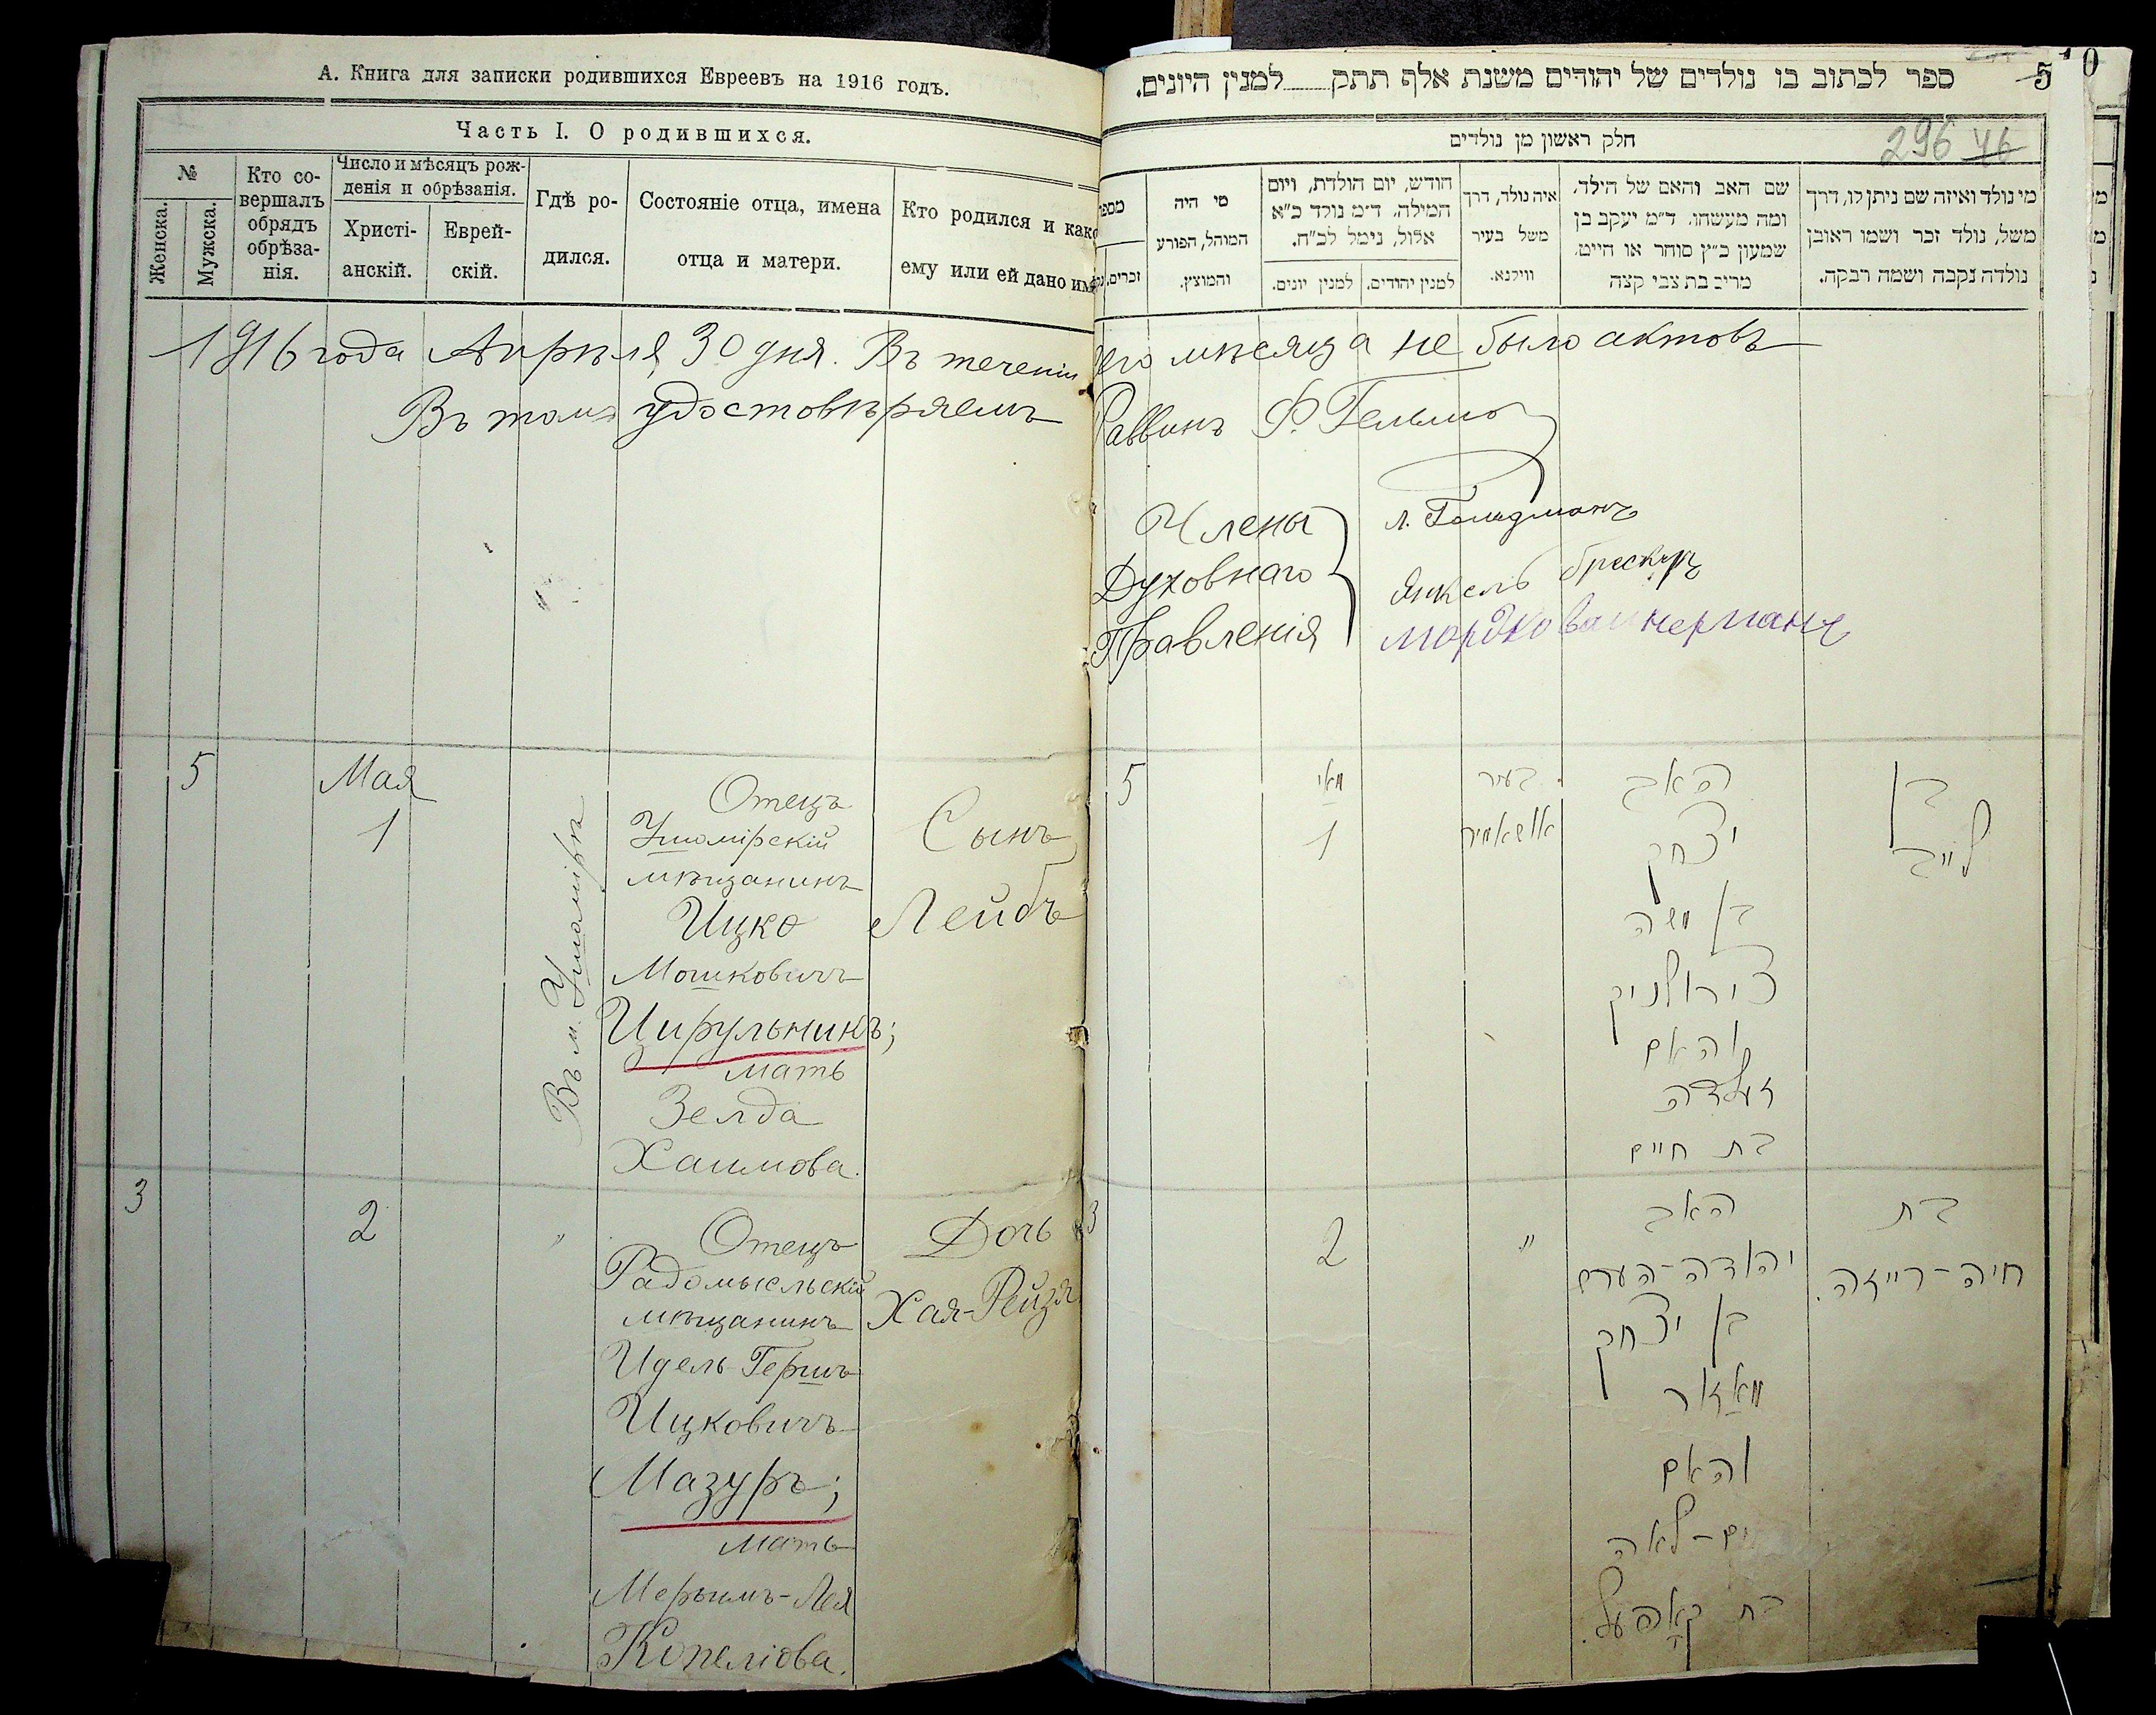 А. Книга для записки родившихся Евреевъ на 1916 годъ.
Часть I. О родившихся.
№
Женска.
Мужска.
Кто со-
вершалъ
обрядъ
обрѣза-
нія.
Число и мѣсяцъ рож-
денія и обрѣзанія.
Христі-
анскій.
Еврей-
скій.
Гдѣ ро-
дился.
Состояніе отца, имена
отца и матери.
Кто родился и како
ему или ей дано им
1916 года Апрѣля 30 дня. Въ теченіи
Въ томъ удостовѣряемъ
5
Мая
1
Въ м. Ушомірѣ
Отецъ
Ушомірскій
мѣщанинъ
Ицко
Мошковичъ
Цирульникъ;
мать
Зелда
Хаимова.
Сынъ
Лейбъ
3
2
"
Отецъ
Радомысльскій
мѣщанинъ
Идель-Гершъ
Ицковичъ
Мазуръ;
мать
Мерымъ-Лея
Копеліова.
Дочь
Хая-Рейзя
ספר לכתוב בו נולדים של יהודים משנת אלף תתק למנין היונים.
5
0
חלק ראשון מן נולדים
296 46
מי נולד ואיזה שם ניתן לו, דרך
משל, נולד זכר ושמו ראובן
נולדה נקבה ושמה רבקה.
שם האב והאם של הילד,
ומה מעשהו. ד״מ יעקב בן
שמעון כ״ץ סוחר או חייט.
מריב בת צבי קצה
איה נולד, דרך
משל בעיר
ווילנא.
חודש, יום הולדת, ויום
המילה. ד״מ נולד כ״א
אלול, נימל לכ״ח.
למנין יהודים.
למנין יונים.
מי היה
המוהל, הפורע
והמוצץ.
מספ
זכרים.
его мѣсяца не было актовъ
Раввинъ Ф. Гельма
Члены
Духовнаго
Правленія
Л. Гольдманъ
Янкель Брескеръ
Мордко Ваинерманъ
5
מאי
1
בעיר
אושאמיר
האב
יצחק
בן משה
צירולניק
והאם
זעלדה
בת חיים
בן
לייב
3
2
"
האב
יהודה-הערש
בן יצחק
מאזור
והאם
-לאה
בת קאפעל.
בת
חיה-רייזה.